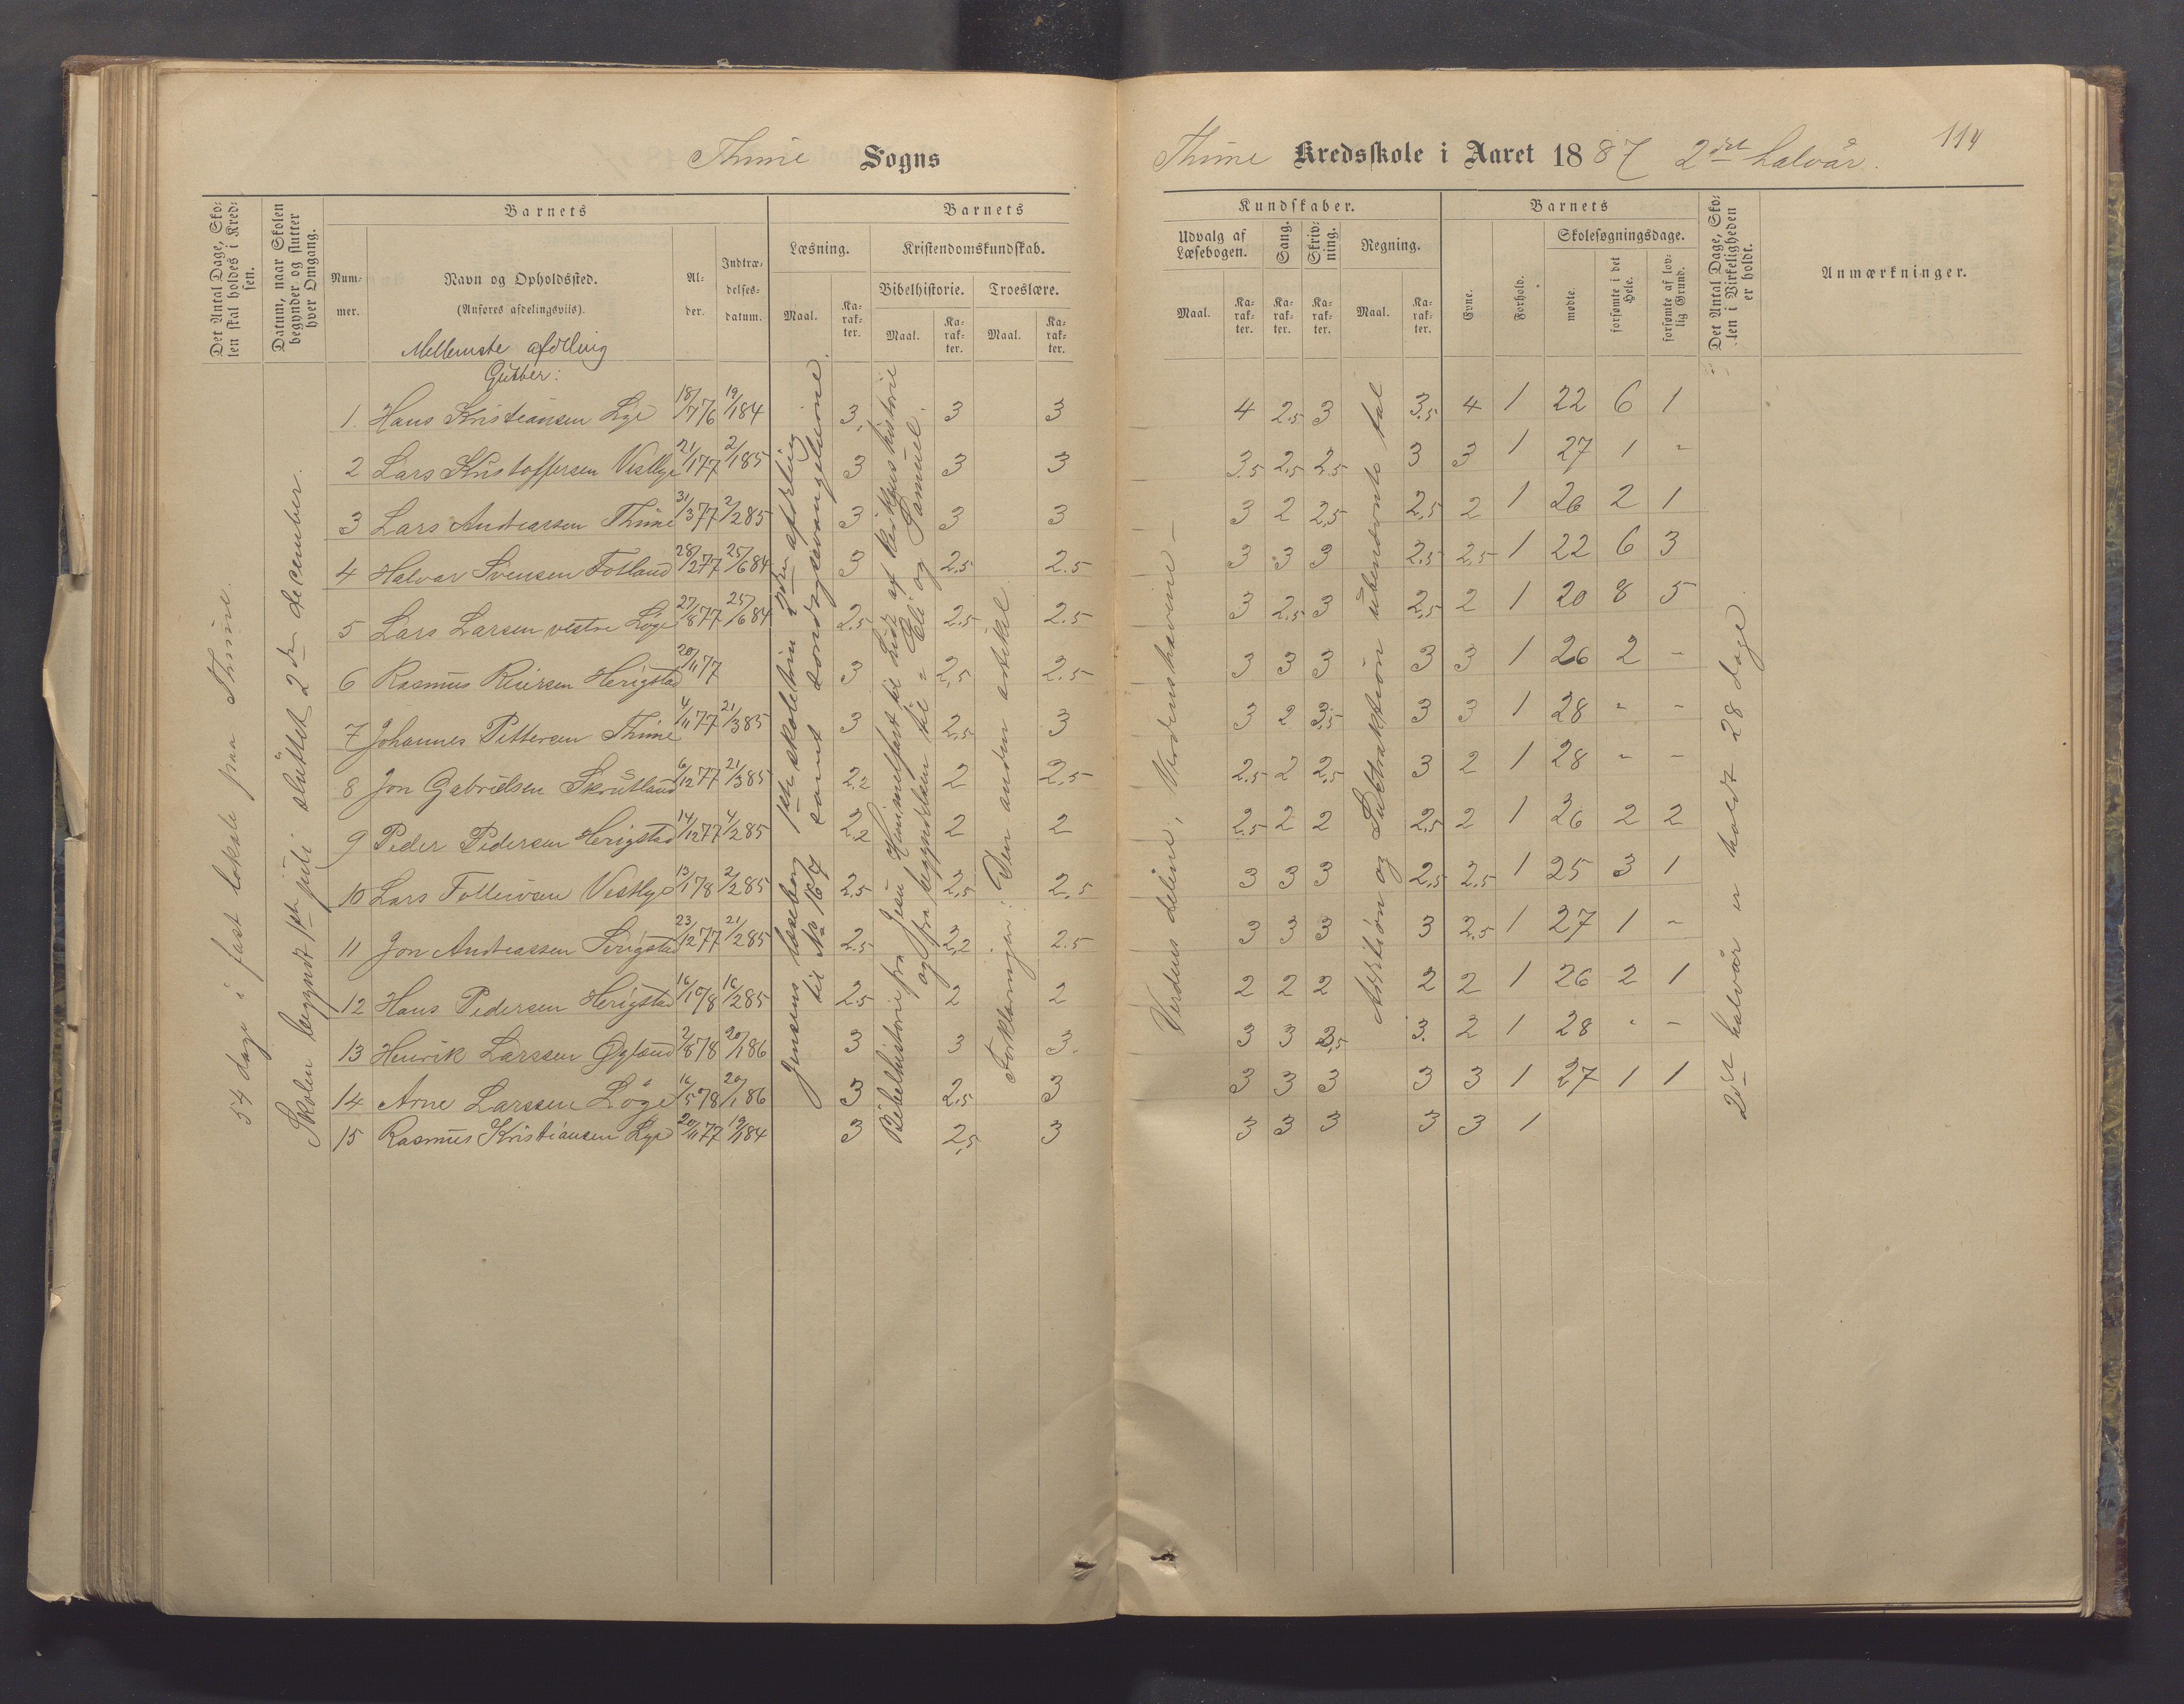 Thime Sogns
Thime Kredsskole i Aaret 1887 2det halvår.
114
Det Antal Dage, Sko-
len skal holdes i Kred-
sen.
Datum, naar Skolen
begynder og slutter
hver Omgang.
Barnets
Num-
mer.
Navn og Opholdssted.
(Anføres afdelingsviis).
Al-
der.
Indtræ-
delses-
datum.
Barnets
Læsning.
Maal.
Ka-
rak-
ter.
Kristendomskundskab.
Bibelhistorie.
Maal.
Ka-
rak-
ter.
Troeslære.
Maal.
Ka-
rak-
ter.
Kundskaber.
Udvalg af
Læsebogen.
Maal.
Ka-
rak-
ter.
Sang.
Ka-
rak-
ter.
Skriv-
ning.
Ka-
rak-
ter.
Regning.
Maal.
Ka-
rak-
ter.
Barnets
Evne.
Forhold.
Skolesøgningsdage.
mødte.
forsømte i det
Hele.
forsømte af lov-
lig Grund.
Det Antal Dage, Sko-
len i Virkeligheden
er holdt.
Anmærkninger.
Mellemste afdeling
Gutter:
54 dage i fast lokale paa Thime.
Skolen begyndt 1ste juli sluttet 2den december.
Jensens læsebog 1ste skoletrin 2den afdeling
til No 167 samt søndagsevangelierne
Bibelhistorie fra Jesu Himmelfart til Kirkens historie
og fra begyndelsen til Eli og Samuel.
Forklaringen: Den anden artikel
Verdens delene, Verdenshavene
Addition og Subtraktion ubenævnte tal
2det halvår er holdt 28 dage.
1. Hans Kristiansen Lye 18/7 76 19/1 84 3. 3 3 4 2.5 3 3.5 4 1 22 6 1
2 Lars Kristoffersen Vestlye 21/1 77 2/1 85 3 3 3 3.5 2.5 2.5 3 3 1 27 1 -
3 Lars Andreasen Thime 31/3 77 2/2 85 3 3 3 3 2 2.5 2.5 2 1 26 2 1
4 Halvar Svensen Fotland 28/2 77 25/6 84 3 2.5 2.5 3 3 3 2.5 2.5 1 22 6 3
5 Lars Larsen vestre Løge 27/8 77 25/6 84 2.5 2.5 2.5 3 2.5 3 2.5 2 1 20 8 5
6 Rasmus Reiersen Herigstad 20/11 77 3 2.5 2.5 3 3 3 3 3 1 26 2 -
7 Johannes Pettersen Thime 4/11 77 21/3 85 3 2.5 3 3 2 3.5 3 3 1 28 - -
8 Jon Gabrielsen Skrutland 6/12 77 21/3 85 2.2 2 2.5 2.5 2 2.5 3 2 1 28 - -
9 Peder Pedersen Herigstad 14/12 77 4/2 85 2.2 2 2 2.5 2 2 2.5 2 1 26 2 2
10 Lars Tolleivsen Vestlye 13/1 78 2/2 85 2.5 2.5 2.5 3 3 3 2.5 2.5 1 25 3 1
11 Jon Andreassen 23/12 77 21/2 85 2.5 2.2 2.5 3 3 3 3 2.5 1 27 1 -
12 Hans Pedersen Herigstad 16/10 78 16/2 85 2.5 2 2 2 2 2 2 2 1 26 2 1
13 Henrik Larssen Øgland 2/8 78 20/1 86 3 3 3. 3 3 3.5 3. 2 1 28 - -
14 Arne Larssen Løge 16/5 78 20/1 86 3 2.5 3 3 3 3 3 3 1 27 1 1
15 Rasmus Kristiansen Lye 20/11 77 19/1 84 3 2.5 3 3 3 3 3 3 1